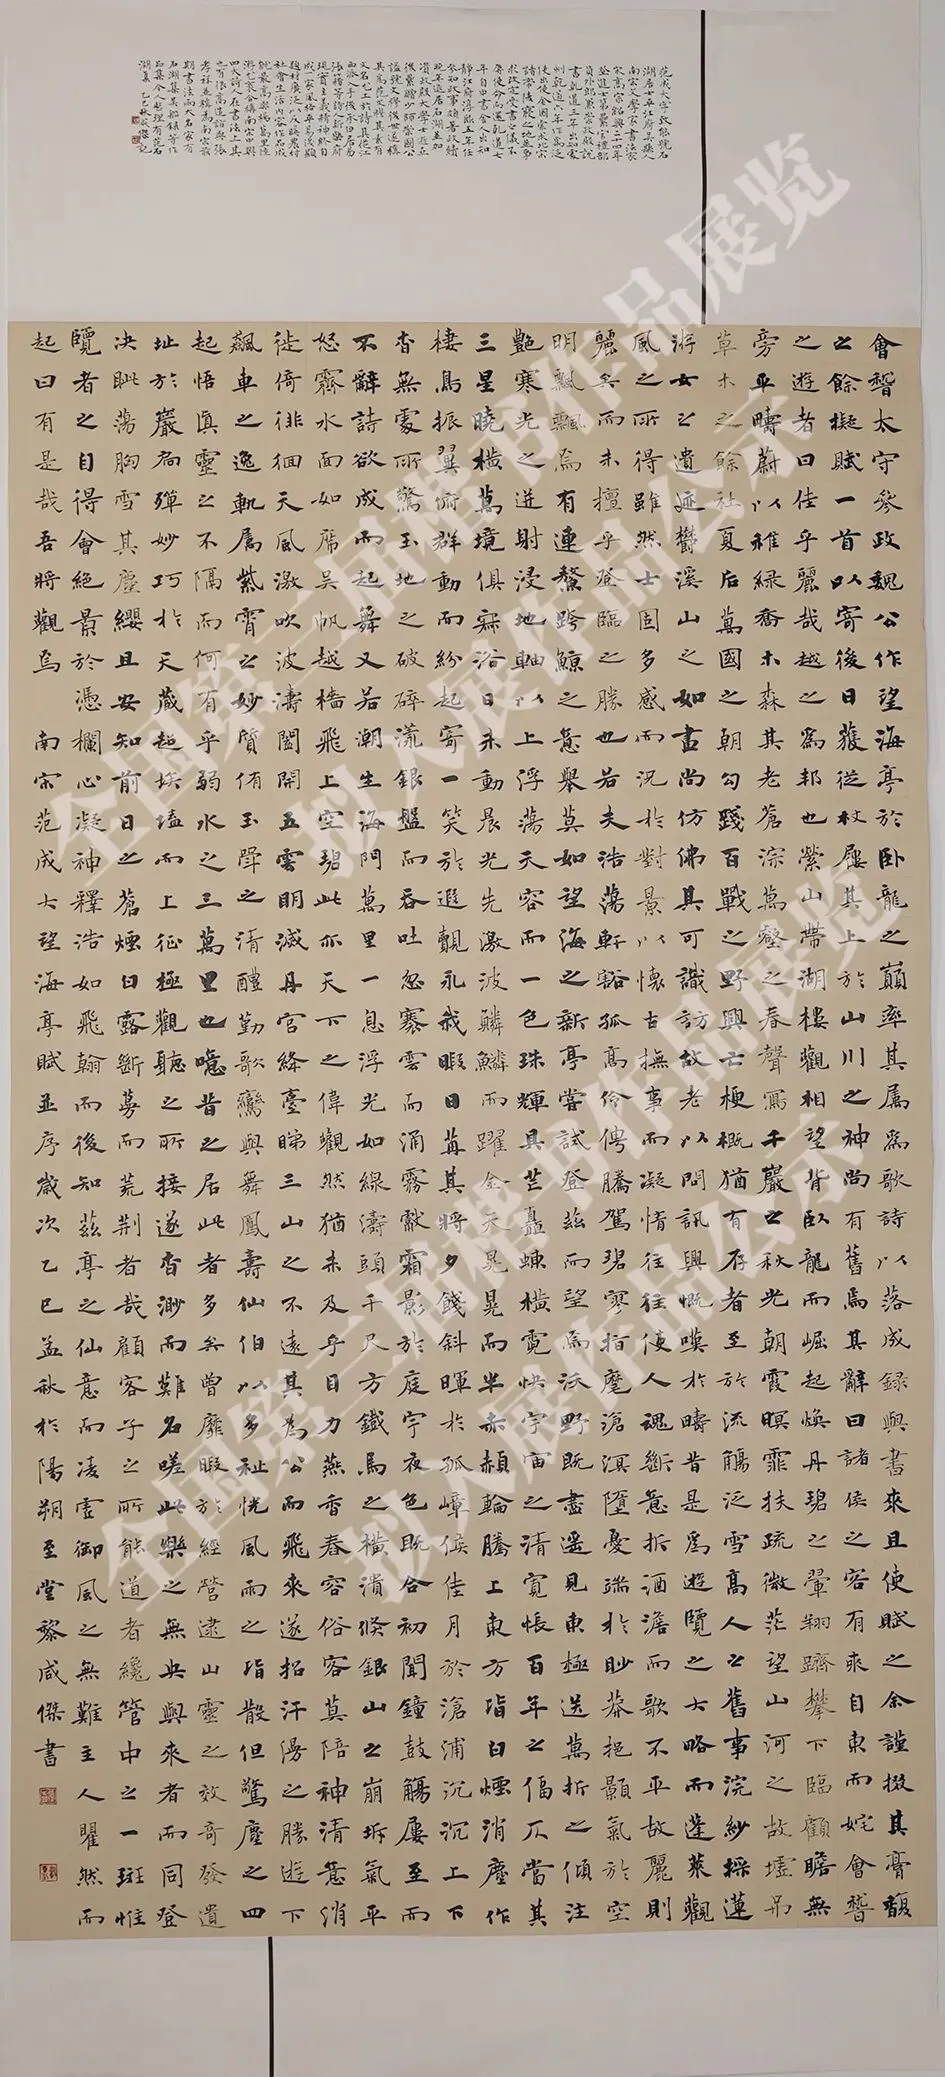 范成大字致能號石
湖居士平江府吳縣人
南宋文學家書法家
宋高宗紹興二十四年
登進士第累官禮部
員外郎兼崇政殿說
書乾道三年出知處
州乾道六年作爲泛
使出使金國索求北宋
諸帝陵寢之地並爭
求改定受書之儀不
辱使命而還乾道七
年自中書舍人出知
靜江府淳熙五年任
參知政事頗著政績
晚年退居石湖並加
資政殿大學士
會稽太守參政魏公作望海亭於卧龍之巔率其屬爲歌詩以落成録與書來且使賦之余謹掇其膏馥
之餘擬賦一首以寄後日獲從杖屨其上於山川之神尚有舊焉其辭曰諸侯之客有來自東而姹會稽
之遊者曰佳乎麗哉越之爲邦也縈山帶湖樓觀相望背卧龍而崛起煥丹碧之翬翔躋攀下臨顧瞻無
旁平疇蔚以稚緑喬木森其老蒼淙萬壑之春聲寫千巖之秋光朝霞暝霏扶疏微茫望山河之故墟吊
草木之餘社夏后萬國之朝勾踐百戰之野興亡梗概猶有存者至於流觴泛雪高人之舊事浣紗採蓮
游女之遺迹鬱溪山之如畫尚仿佛其可識訪故老以問訊興慨嘆於疇昔是爲遊覽之大略而蓬萊觀
風之所得雖然士固多感而況於對景以懷古撫事而凝情往往使人魂斷意折酒澹而歌不平故麗則
麗矣而未擅乎登臨之勝也若夫浩蕩軒豁孤高伶俜騰駕碧寥指麾滄溟墮憂端於眇莽挹顥氣於空
明飄飄焉有連鰲跨鯨之意舉莫如望海之新亭嘗試登茲而望焉沃野既盡遥見東極送萬折之傾注
艷寒光之迸射浸地軸以上浮蕩天容而一色珠輝具芒矗蝀橫霓快宇宙之清寬悵百年之偪仄當其
三星曉橫萬境俱寂浴日未動晨光先激波鱗鱗而躍金天晃晃而半赤赬輪騰上東方皆白煙消塵作
棲鳥振翼俯群動而紛起寄一笑於遐觀永我暇日苒其將夕餞斜暉於孤嶂候佳月於滄浦沉沉上下
杳無處所驚玉地之破碎銀盤而吞吐忽褰雲而涌霧獻霜影於庭宇夜色既合初聞鐘鼓觴屢至而
不辭詩欲成而起舞又若潮生海門萬里一息浮光如線濤頭千尺方鐵馬之橫潰倏銀山之崩坼氣平
怒霽水面如席吳帆越檣飛上空碧此亦天下之偉觀然猶未及乎目力燕香春容俗客莫陪神清意俏
徙倚徘徊天風激吹波濤闔開五雲明滅丹宫絳臺睇三山之不遠其爲公而飛來遂招汗漫之勝遊下
飆車之逸軌屬紫霄之妙質侑玉聲之清醴勤歌鸞與舞鳳壽仙伯以多祉恍風而之皆散但驚塵之四
起悟眞靈之不隔而何有乎弱水之三萬里也噫昔之居此者多矣曾靡暇於經營逮山靈之效奇發遺
址於巖扃殫妙巧於天藏超埃壒而上征極觀聽之所接遂杳渺而難名嗟此樂之無央與來者而同登
决眦蕩胸雪其塵纓且安知前日之蒼煙白露斷蔓而荒荆者哉顧客子之所能道者纔管中之一斑惟
覽者之自得會絕景於憑欄心凝神釋浩如飛翰而後知茲亭之仙意而凌虚御風之無難主人瞿然而
起曰有是哉吾將觀焉 南宋范成大望海亭賦並序歲次乙巳孟秋於陽朔至堂黎咸傑書
全国第三届楷书作品展览
拟入展作品公示
全国第三届楷书作品展览
拟入展作品公示